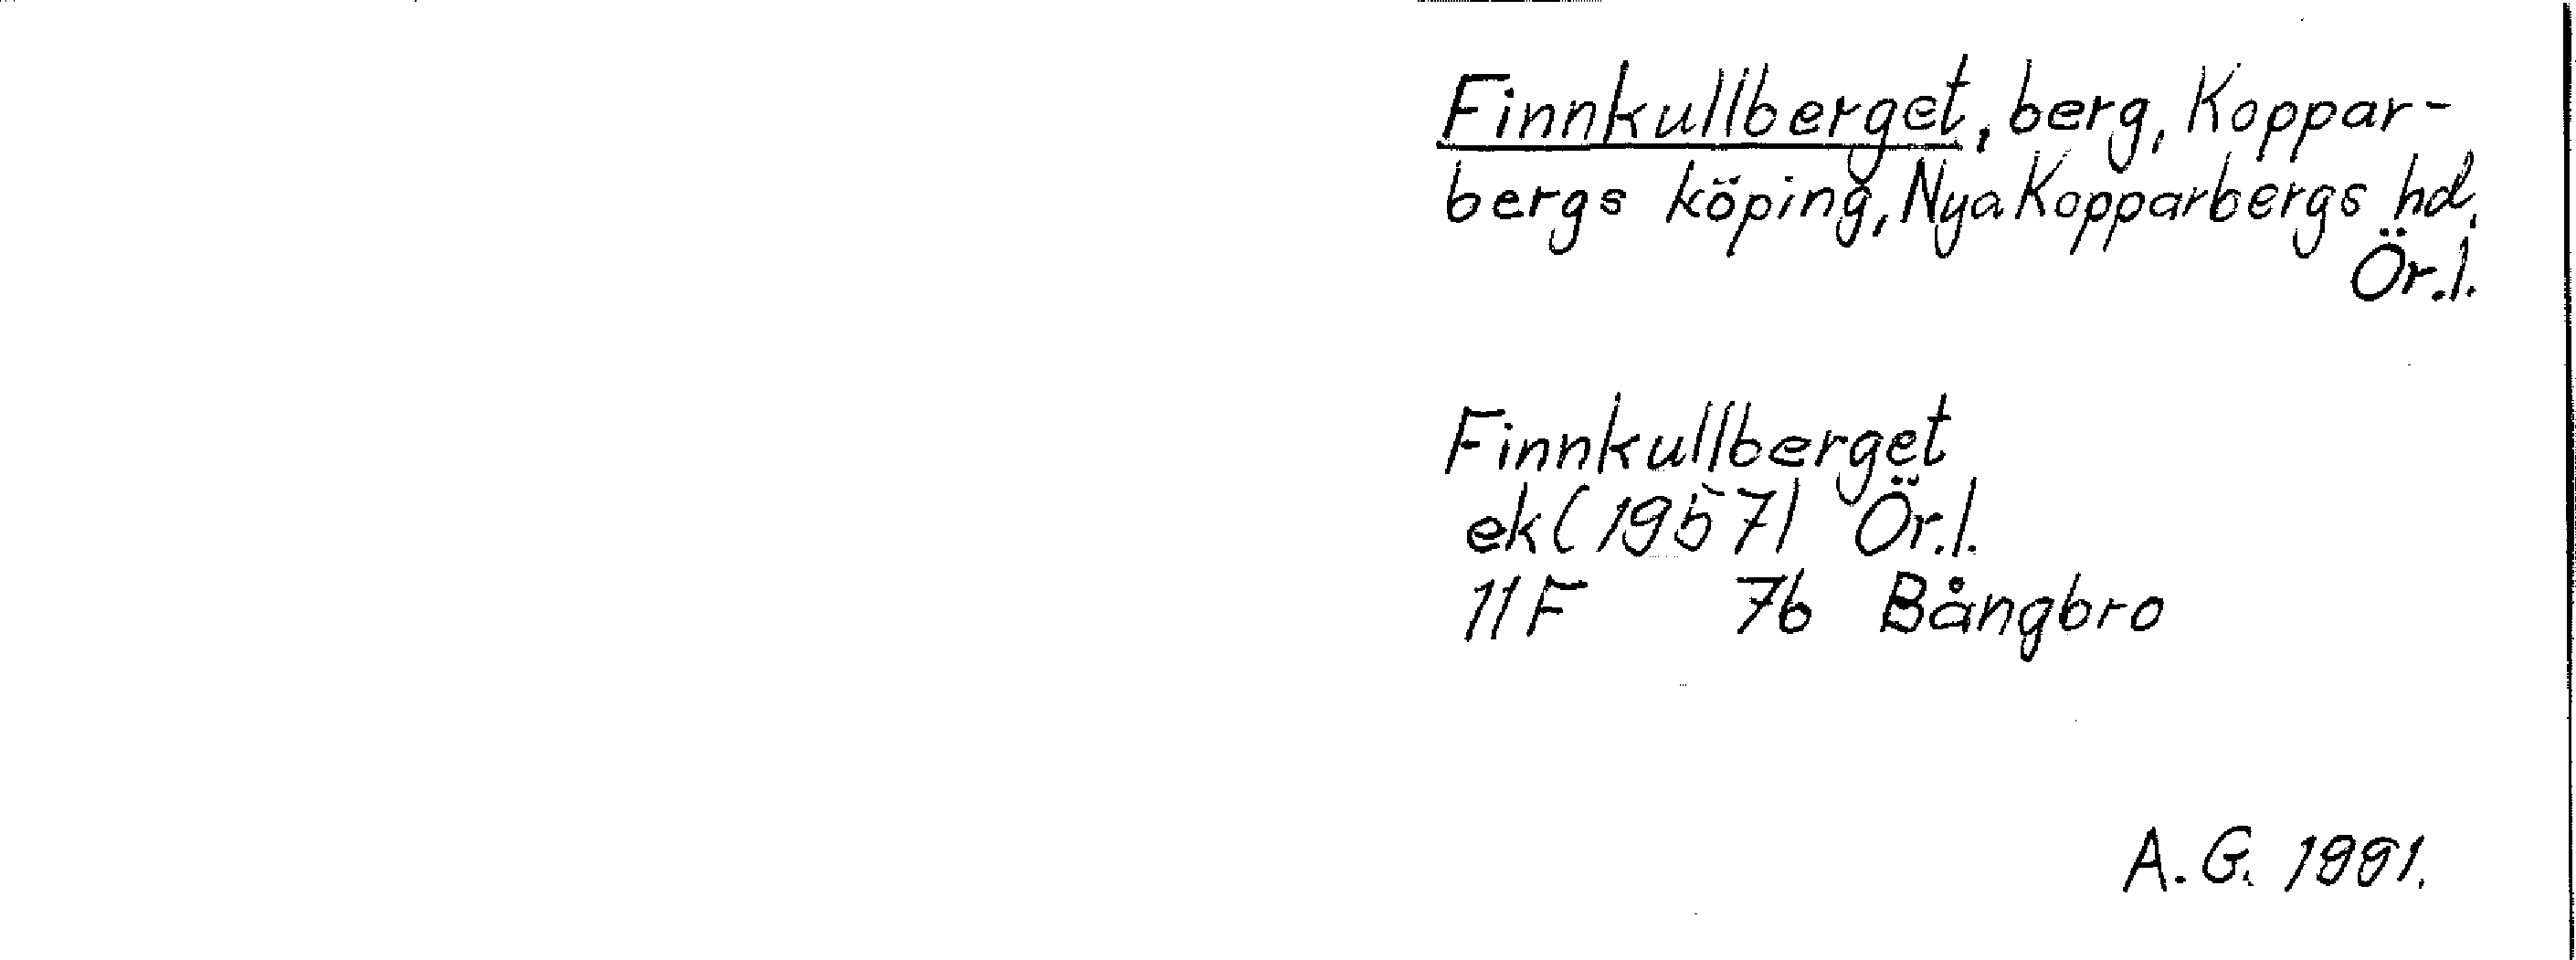 Finnkullberget, berg, Koppar-
bergs köping, Nya Kopparbergs hd,
Ör.l.
Finnkullberget
ek (1957) Ör.l.
11F 7b Bångbro
A.G. 1991.